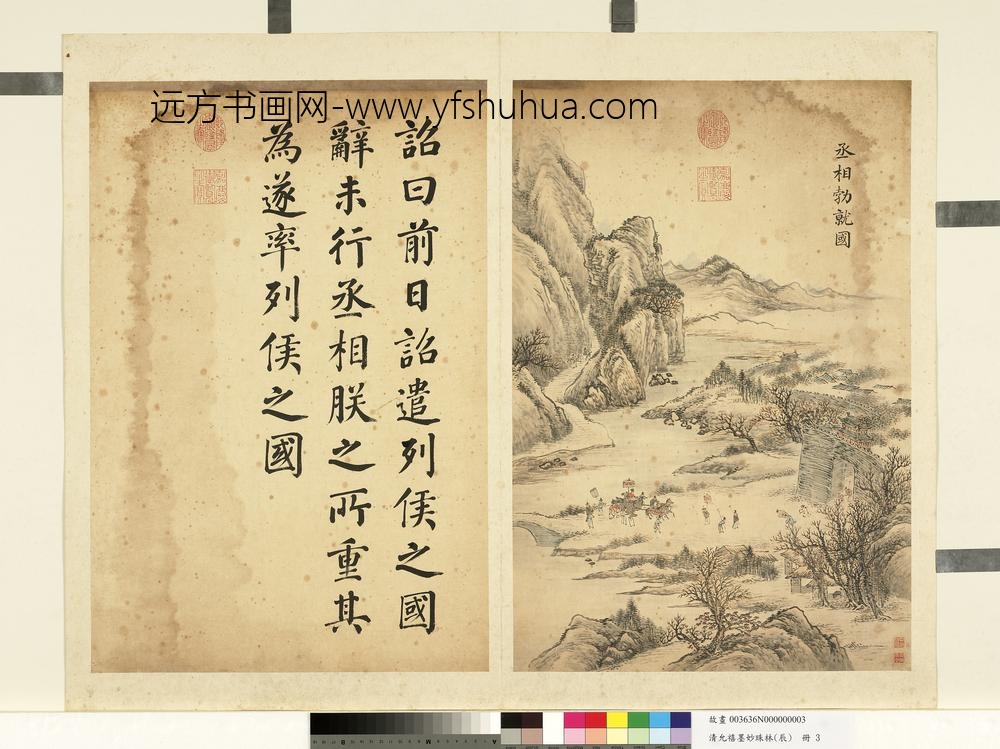 远方书画网-www.yfshuhua.com
丞相勃就國
詔曰前日詔遣列侯之國
辭未行丞相朕之所重其
為遂率列侯之國
故畫 003636N000000003
清允禧墨妙珠林(辰) 冊 3